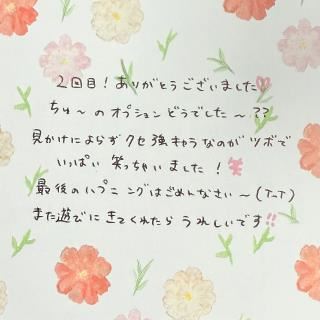 2回目！ありがとうございました♡
ちゅ〜のオプションどうでした〜??
見かけによらずクセ強キャラなのがツボで
いっぱい笑っちゃいました！
最後のハプニングはごめんなさい〜(T_T)
また遊びにきてくれたらうれしいです!!